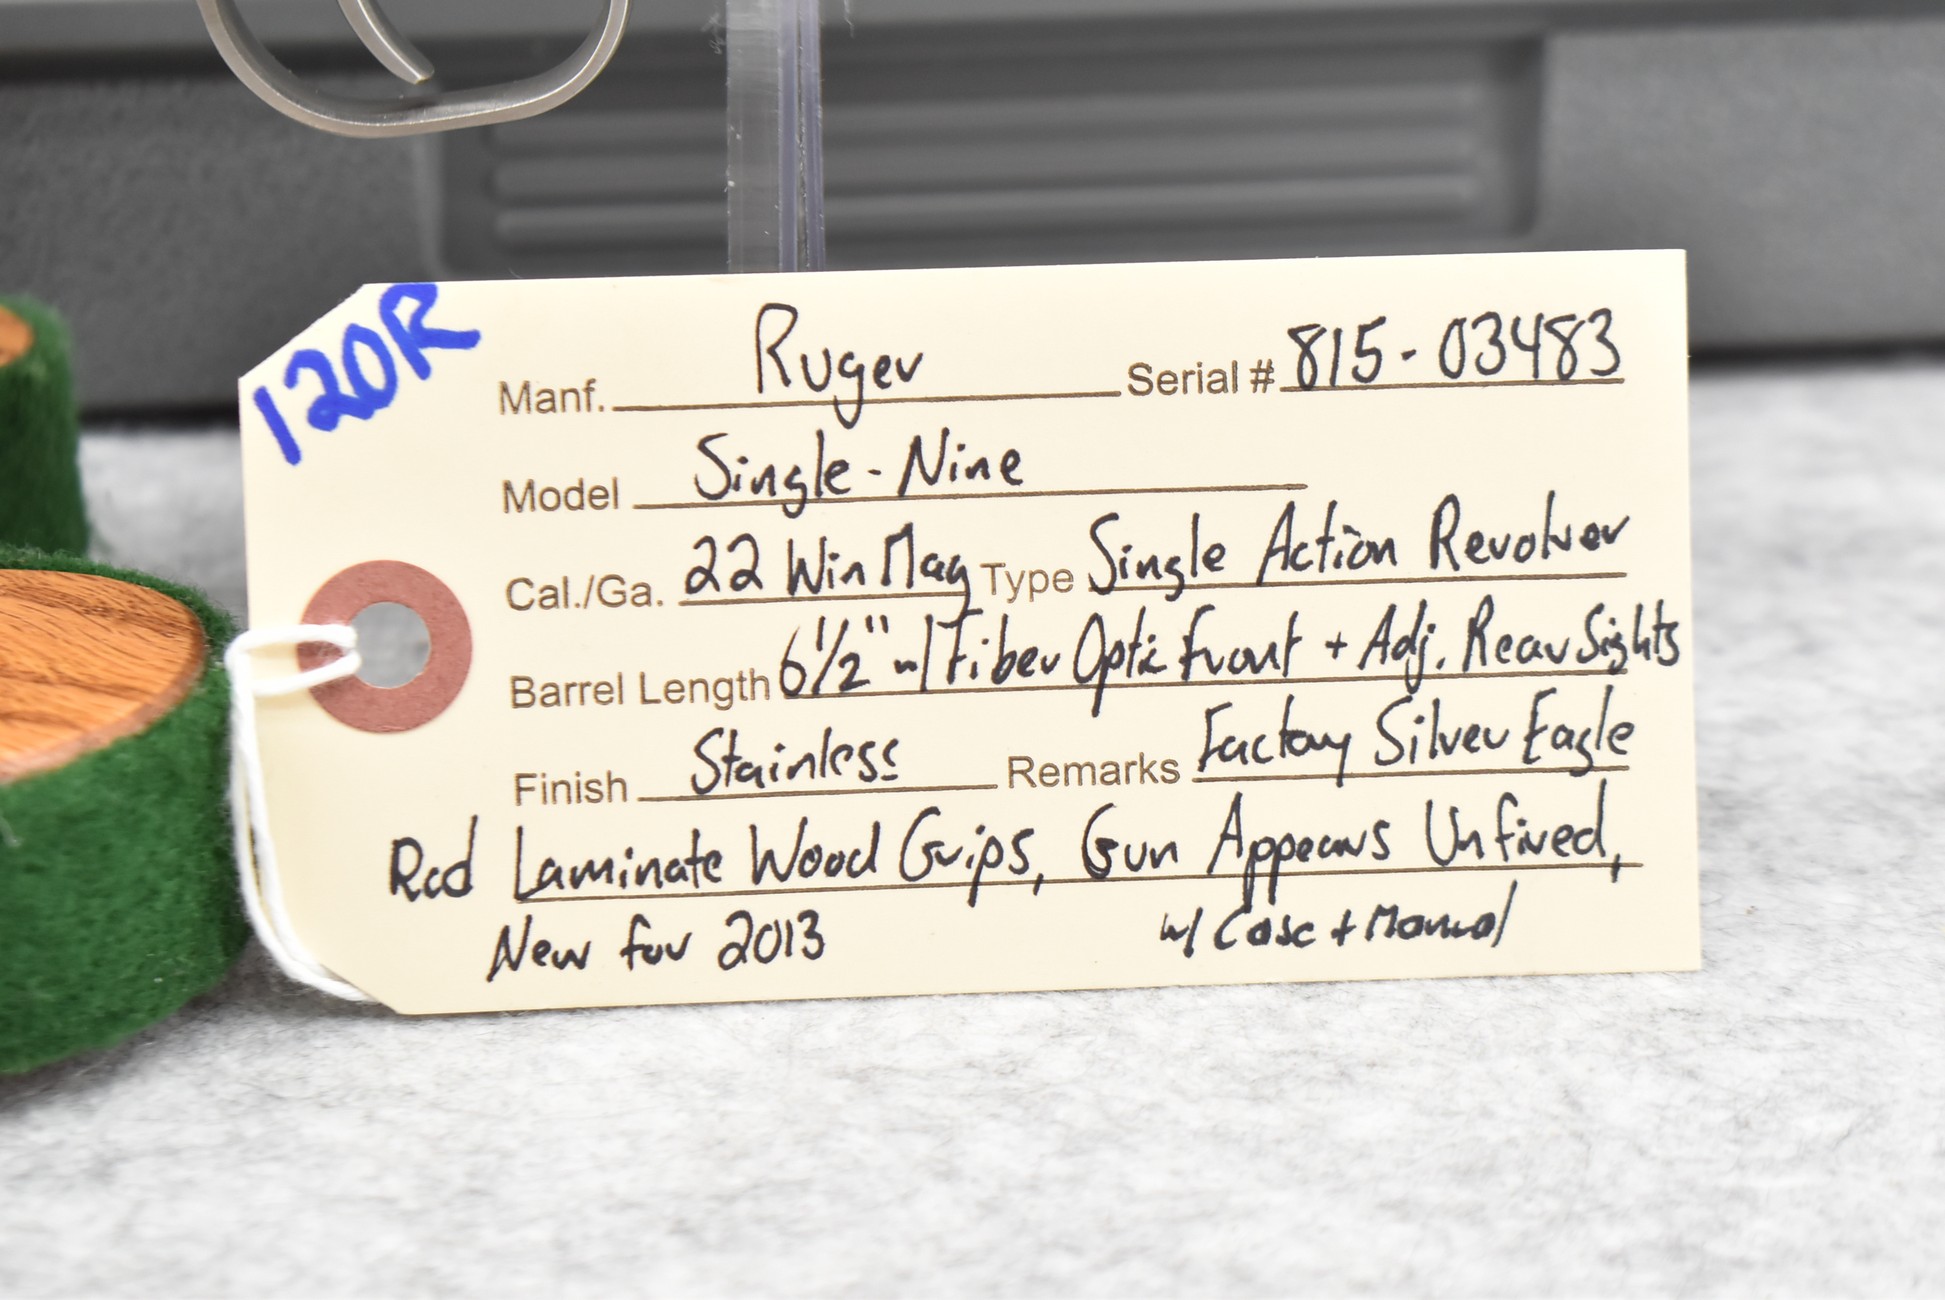 120R
Manf. Ruger Serial # 815-03483
Model Single-Nine
Cal./Ga. 22 Win Mag Type Single Action Revolver
Barrel Length 6 1/2" w/ Fiber Optic Front + Adj. Rear Sights
Finish Stainless Remarks Factory Silver Eagle
Red Laminate Wood Grips, Gun Appears Unfired,
New for 2013 w/ Case + Manual